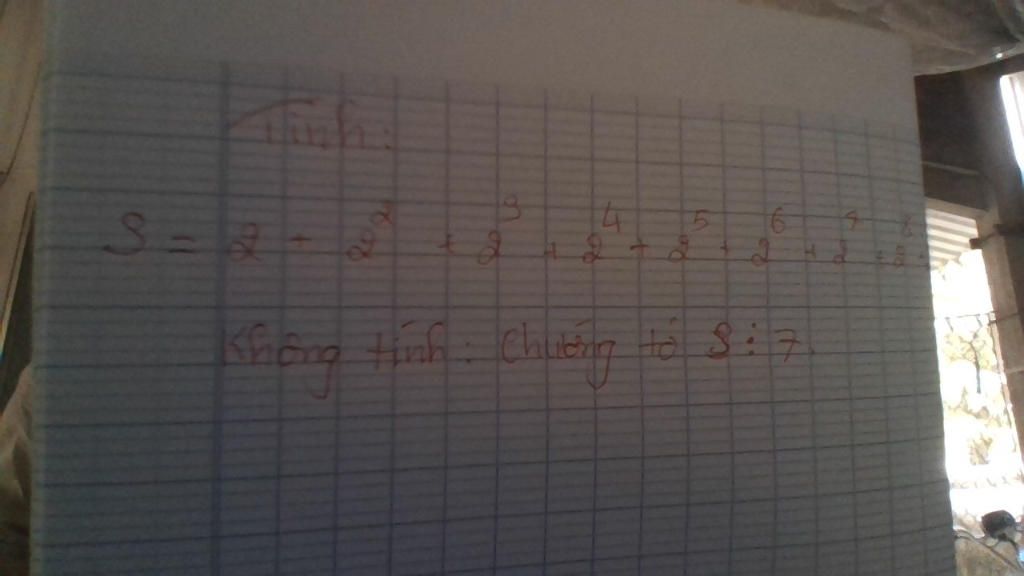 Tính:
S = 2 + 2² + 2³ + 2⁴ + 2⁵ + 2⁶ + 2⁷ + 2⁸
Không tính: Chướng tỏ S ⋮ 7.